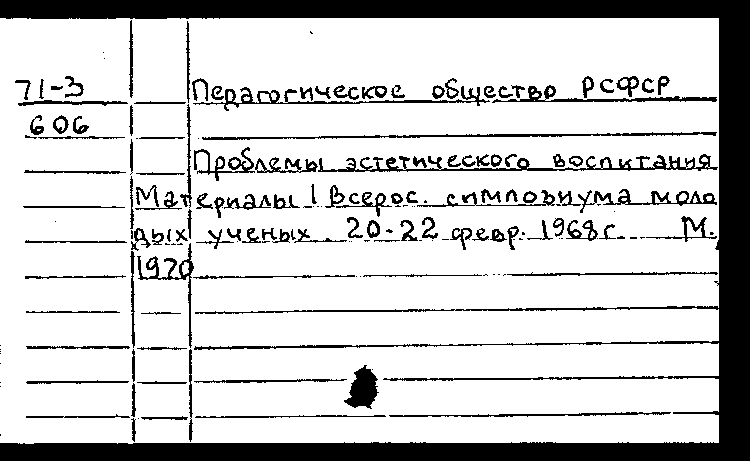 71-3 Педагогическое общество РСФСР
606
Проблемы эстетического воспитания
Материалы I Всерос. симпозиума моло
дых ученых. 20-22 февр. 1968 г. М.,
1970